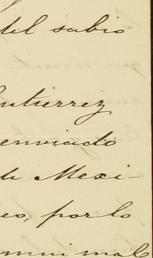 del sabio
Gutierrez
enviado
de Mexi-
co, por lo